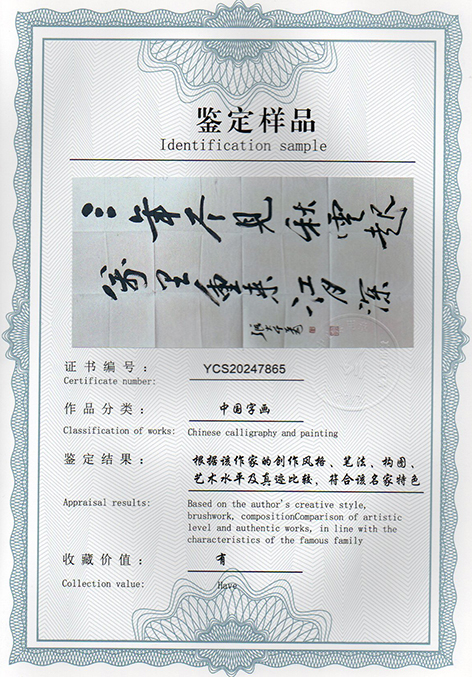 鉴定样品
Identification sample
三年不见秋云起
万里重来江月深
证书编号：
YCS20247865
Certificate number:
作品分类：
中国字画
Classification of works:
Chinese calligraphy and painting
鉴定结果：
根据该作家的创作风格、笔法、构图、
艺术水平及真迹比较，符合该名家特色
Appraisal results:
Based on the author's creative style,
brushwork, compositionComparison of artistic
level and authentic works, in line with the
characteristics of the famous family
收藏价值：
有
Collection value:
Have